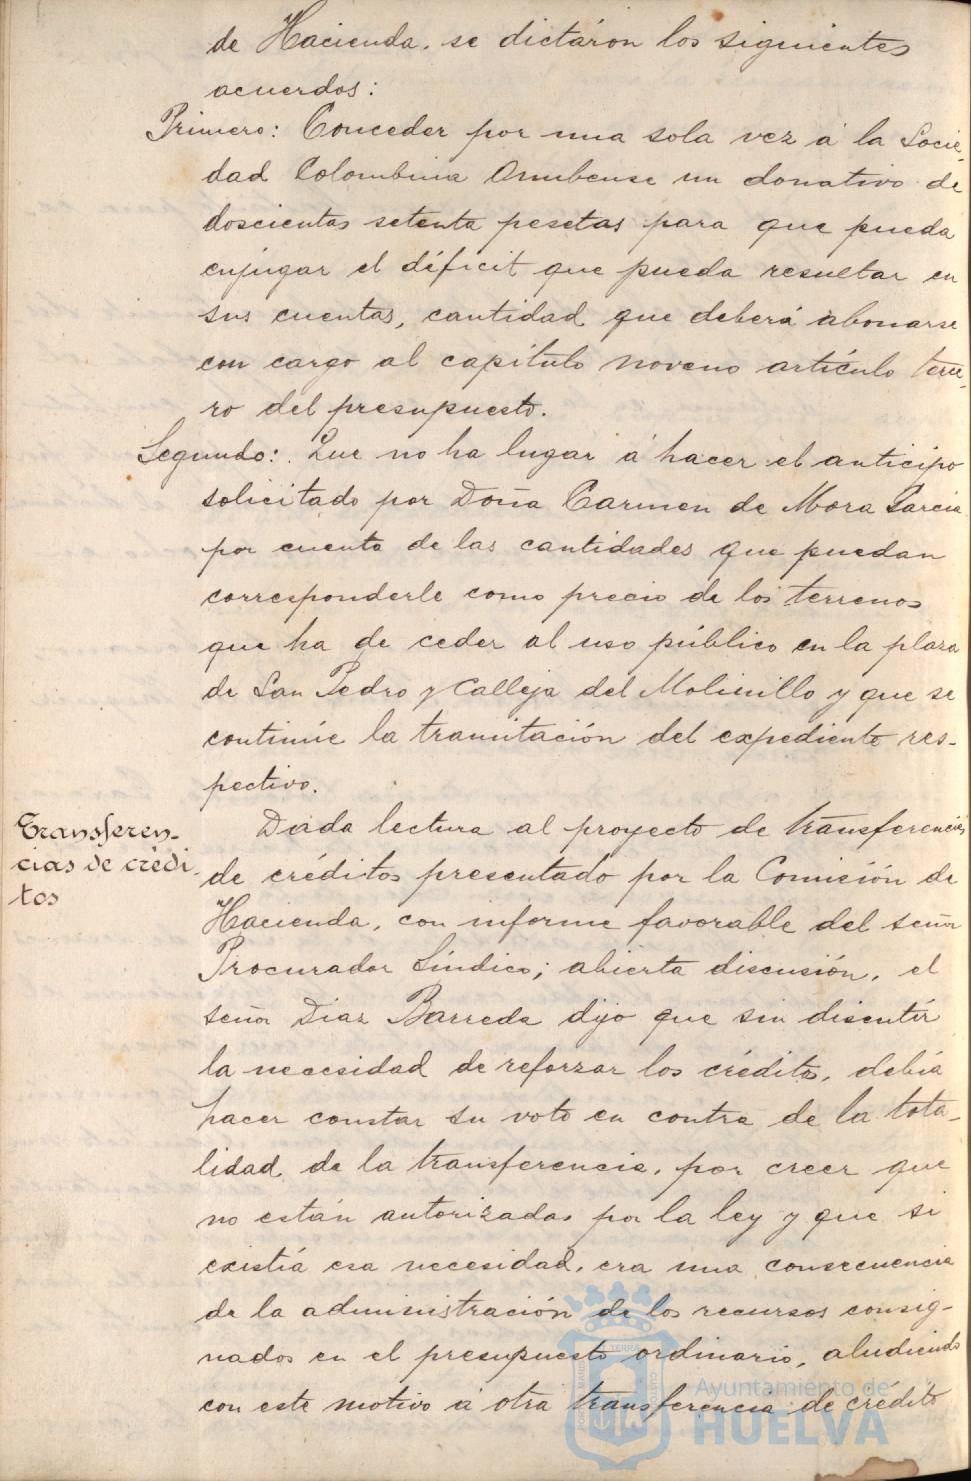 de Hacienda, se dictáron los siguientes
acuerdos:
Primero: Conceder por una sola vez á la Socie-
dad Colombina Onubense un donativo de
doscientas setenta pesetas para que pueda
enjugar el déficit que pueda resultar en
sus cuentas, cantidad que deberá abonarse
con cargo al capítulo noveno artículo terce-
ro del presupuesto.
Segundo: Que no ha lugar á hacer el anticipo
solicitado por Doña Carmen de Mora Garcia
por cuenta de las cantidades que puedan
corresponderle como precio de los terrenos
que ha de ceder al uso público en la plaza
de San Pedro y Calleja del Molinillo y que se
continúe la tramitación del expediente res-
pectivo.
Transferen-
cias de crédi-
tos
Dada lectura al proyecto de transferencias
de créditos presentado por la Comisión de
Hacienda, con informe favorable del señor
Procurador Síndico; abierta discusión, el
señor Diaz Barreda dijo que sin discutir
la necesidad de reforzar los créditos, debía
hacer constar su voto en contra de la tota-
lidad de la transferencia, por creer que
no están autorizadas por la ley y que si
existía esa necesidad, era una consecuencia
de la administración de los recursos consig-
nados en el presupuesto ordinario, aludiendo
con este motivo á otra transferencia de crédito
Ayuntamiento de
HUELVA